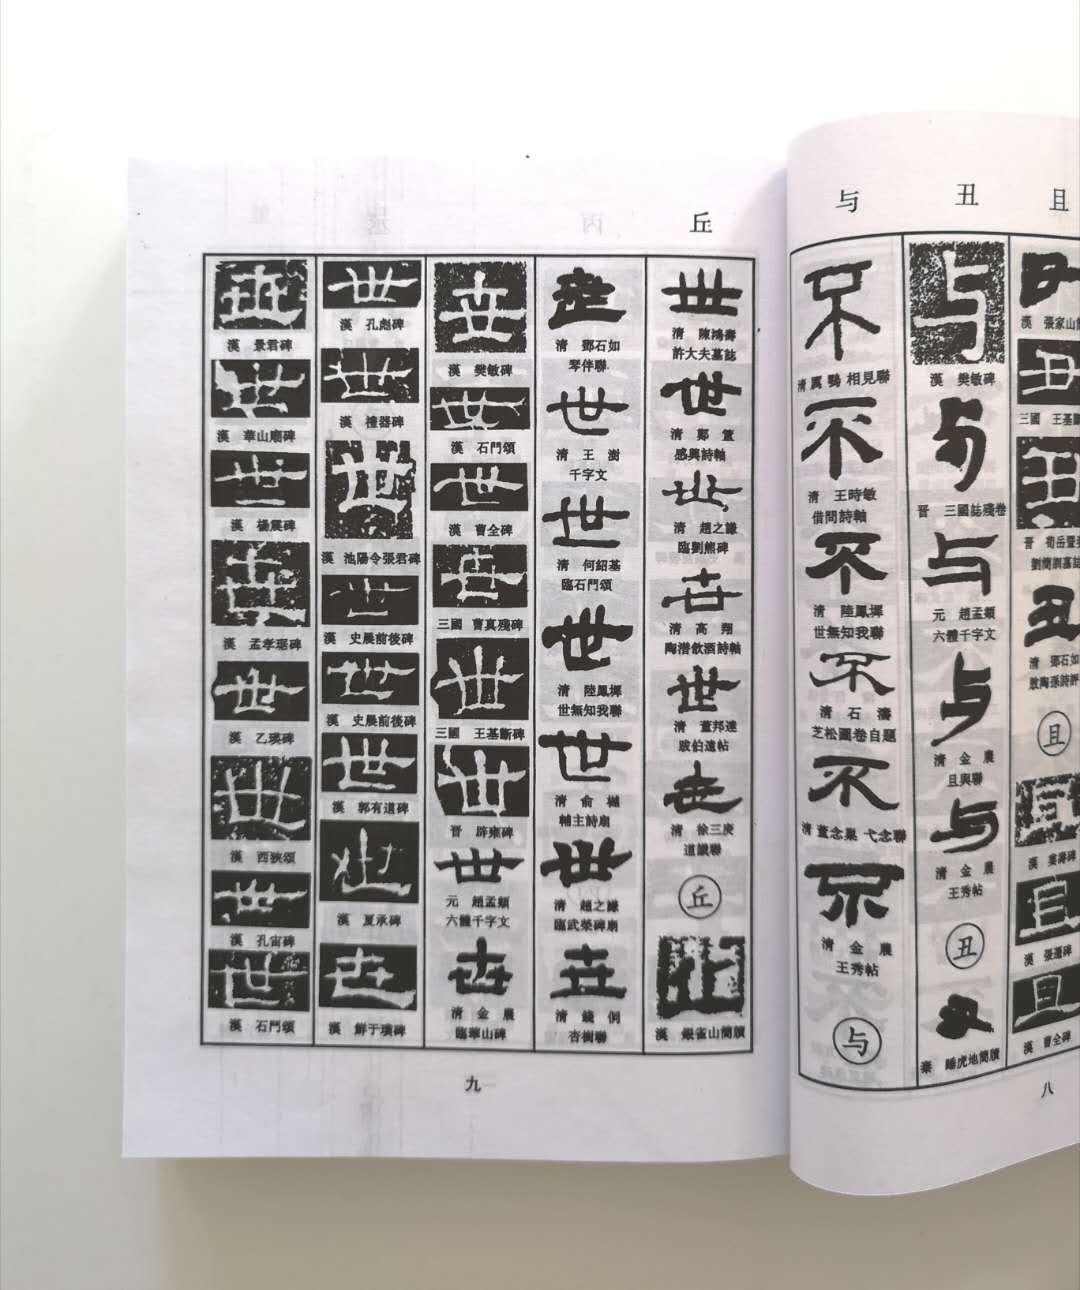 与
丑
且
不
清 厲鶚 相見聯
不
清 王時敏
借問詩軸
不
清 陸鳳墀
世無知我聯
不
清 石濤
芝松圖卷自題
不
清 董念棻 弋念聯
不
清 金農
王秀帖
与
与
漢 樊敏碑
与
晉 三國誌殘卷
与
元 趙孟頫
六體千字文
与
清 金農
且與聯
与
清 金農
王秀帖
丑
丑
秦 睡虎地簡牘
丑
漢 張家山
丑
三國 王基斷
丑
晉 荀岳暨妻
劉簡訓墓誌
丑
清 鄧石如
敖陶孫詩評
且
且
漢 婁壽碑
且
漢 張遷碑
且
漢 曹全碑
八
丘
世
漢 景君碑
世
漢 華山廟碑
世
漢 楊震碑
世
漢 孟孝琚碑
世
漢 乙瑛碑
世
漢 西狹頌
世
漢 孔宙碑
世
漢 石門頌
世
漢 孔彪碑
世
漢 禮器碑
世
漢 池陽令張君碑
世
漢 史晨前後碑
世
漢 史晨前後碑
世
漢 郭有道碑
世
漢 夏承碑
世
漢 鮮于璜碑
世
漢 樊敏碑
世
漢 石門頌
世
漢 曹全碑
世
三國 曹真殘碑
世
三國 王基斷碑
世
晉 辟雍碑
世
元 趙孟頫
六體千字文
世
清 金農
臨華山碑
世
清 鄧石如
琴伴聯
世
清 王澍
千字文
世
清 何紹基
臨石門頌
世
清 陸鳳墀
世無知我聯
世
清 俞樾
輔主詩扇
世
清 趙之謙
臨武榮碑扇
世
清 錢侗
杏樹聯
世
清 陳鴻壽
許大夫墓誌
世
清 鄭簠
感興詩軸
世
清 趙之謙
臨劉熊碑
世
清 高翔
陶潛飲酒詩軸
世
清 董邦達
跋伯遠帖
世
清 徐三庚
道識聯
丘
丘
漢 銀雀山簡牘
九